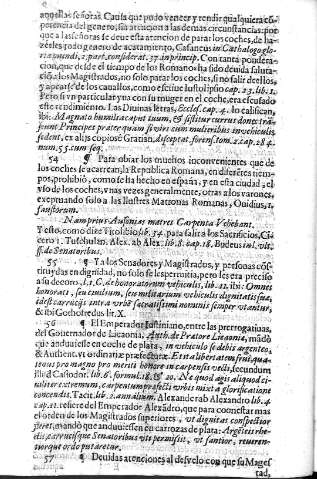 aquellas señoras. Causa que pudo vencer y rendir qualquiera co-
petencia del genero, sin atencion a las demas circunstancias: por
que a las señoras se deue esta atencion de parar los coches, de ha-
zerles todo genero de acatamiento, Casaneus in Cathalogo glo-
riæ mundi, 2. part. considerat. 37. in princip. Con tanta pondera-
cion, que desde el tiempo de los Romanos ha sido deuida saluta-
ció a los Magistrados, no solo parar los coches, si no salir dellos,
y apearse de los cauallos, como es efectiue Iustolipsio cap. 23. lib. 1.
Pero si vn particular yua con su muger en el coche, era escusado
este rendimiento. Las Diuinas letras, Eccles. cap. 4. lo califican,
ibi: Magnato humilia caput tuum, & sistitur currus donec tran-
seunt Principes præter quam si vir cum mulieribus in vehiculis
sedent, ex alijs cum iosé Gratian. discept at. forens. tom. 2. cap. 284
num. 55. cum seq.
54 ¶ Para obiar los muchos inconuenientes que de
los coches se acarrean, la Republica Romana, en diferétes tiem-
pos, prohibió, como se ha hecho en España, y en esta ciudad, el
vso de los coches, vnas vezes generalmente, otras a los varones,
exceptuando solo a las Ilustres Matronas Romanas, Ouidius, 1.
faustorum.
Nam prius Ausonias matres Carpenta Vehebant.
Y esto, como dize Titoliuio lib. 34. para salir a los Sacrificios, Ci-
cero 1. Tusculan. Alex. ab Alex. lib. 8. cap. 18. Budeus in l. vlt.
ff. de Senatoribus.
55 ¶ Ya los Senadores y Magistrados, y personas cós-
tituydas en dignidad, no solo se les permitia, pero les era preciso
a su decoro, l. 1. C. de honoratorum vehiculis, lib. 12. ibi: Omnes
honorati, seu ciuilium, seu militarium vehiculis dignitatis suæ,
id est carrucijs intra vrbē sacratissimi nominis semper vtantur,
& ibi Gothofredus lit. X.
56 ¶ El Emperador Iustiniano, entre las prerrogatiuas,
del Gouernador de Licaonia, Auth. de Prætore Licaonia, mādó
que anduuiesse en coche de plata, in vehiculo sede bis argenteo,
& Authent. vt ordinariæ præfecturæ. Et in libertatem frui, qua-
tenus pro magno pro meriti honore in carpentis vehi, secundum
illud Casiodor. lib. 6. formul. 18. & 20. Ne quod agis aliquod ci-
uiliter extremum, carpentum profecti vrbis mixta glorificatione
concendis. Tacit. lib. 2. annalium. Alexander ab Alexandro lib. 4
cap. 11. refiere del Emperador Alexādro, que para coonestar mas
el orden de los Magistrados superiores, vt dignitas conspectior
foret, mandó que anduuiessen en carrozas de plata: Argēteis rhe-
dis, carrucisque Senatoribus vti permissit, vt sanctior, reueren-
tiorque ordo putaretur.
57 ¶ Deuidas atenciones al desvelo con que su Mages
tad,